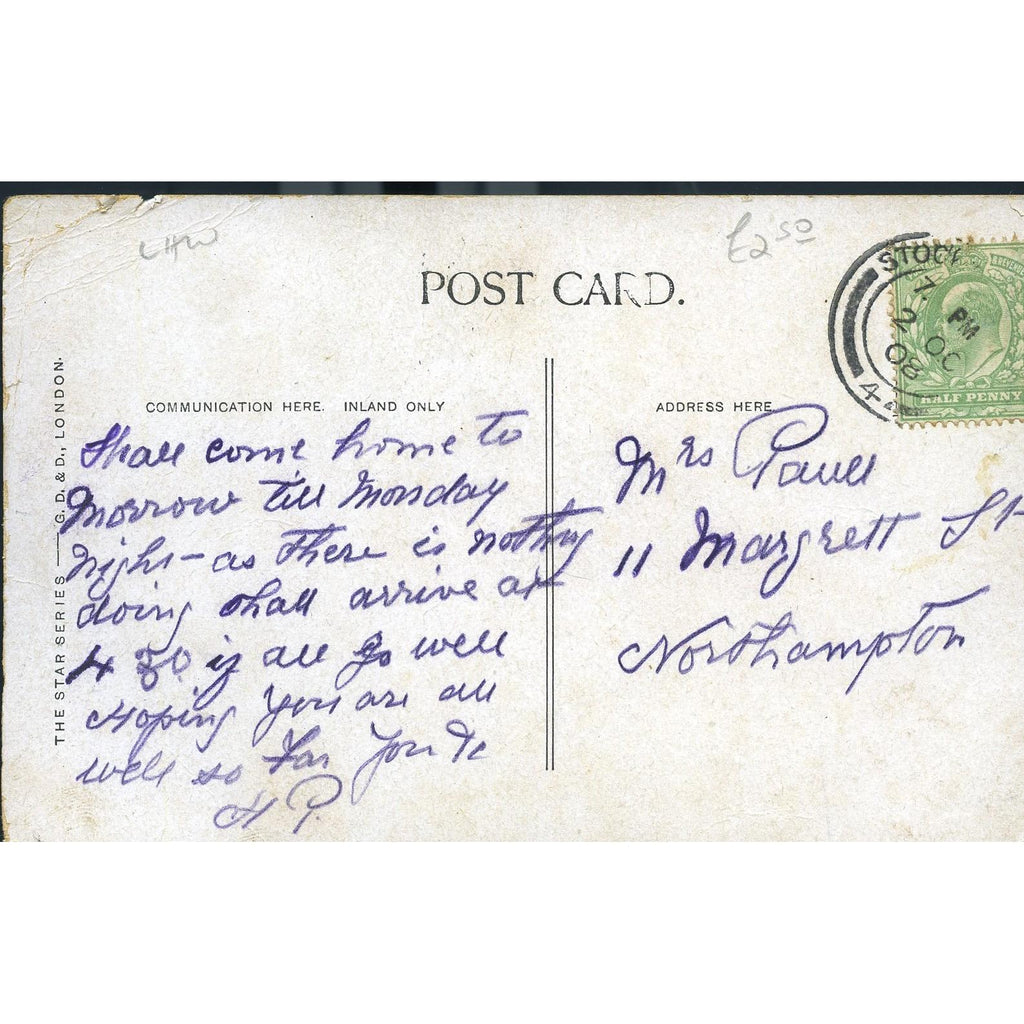 LHW
£2 50
POST CARD.
STOC
7 PM
2 OC
08
4
HALF PENNY
THE STAR SERIES — G. D. & D., LONDON.
COMMUNICATION HERE. INLAND ONLY
Shall come home to
morrow till Monday
night - as there is nothing
doing shall arrive at
4 30 if all go well
Hoping you are all
well so far
H P.
ADDRESS HERE
Mrs Paull
11 Margrett St
Northampton